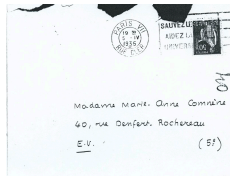 PARIS VII
19 H
5 - IV
1936
SAUVEZ
AIDEZ
UNIVERS
Madame Marie-Anne Comnène
40, rue Denfert Rochereau
E.V. (5e)